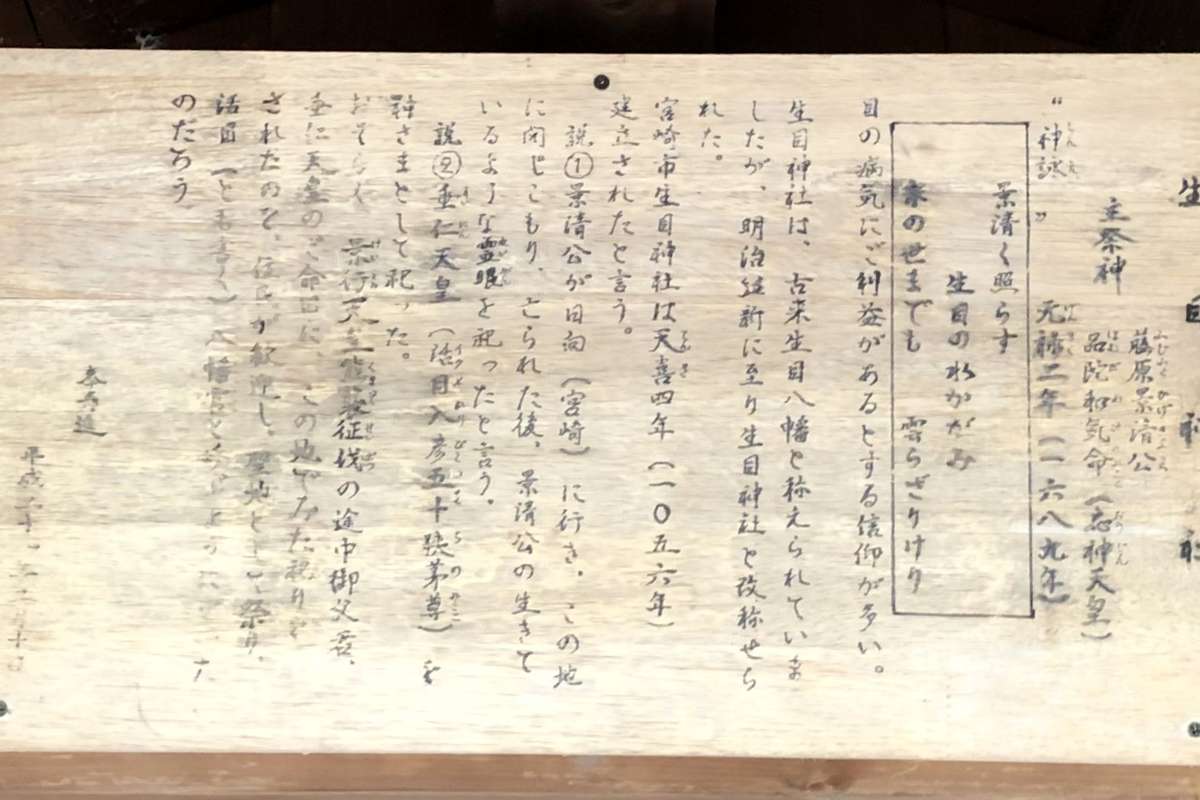 生目神社
主祭神
藤原景清公
品陀和気命(応神天皇)
“神詠” 元禄二年(一六八九年)
景清く照らす
生目の水かがみ
末の世までも 雲らざりけり
目の病気にご利益があるとする信仰が多い。
生目神社は、古来生目八幡と称えられていま
したが、明治維新に至り生目神社と改称せら
れた。
宮崎市生目神社は天喜四年(一〇五六年)
建立されたと言う。
説①景清公が日向(宮崎)に行き、この地
に閉じこもり、亡られた後、景清公の生きて
いるような霊眼を祀ったと言う。
説②垂仁天皇(活目入彦五十狭茅尊)を
神さまとして祀った。
おそらく 景行天皇熊襲征伐の途中御父君、
垂仁天皇のご命日に、この地でみた祝りを
されたのを、住民が歓迎し、聖地として祭り、
活目(とも書く)八幡宮と
のだろう。
平成二十一年